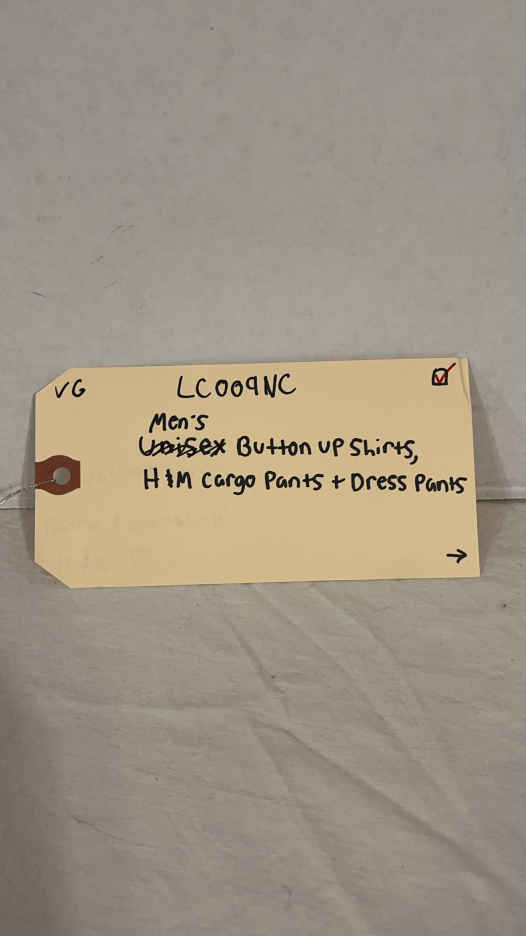 VG LC009NC ☑
Men's
Unisex Button up Shirts,
H&M Cargo Pants + Dress Pants
→